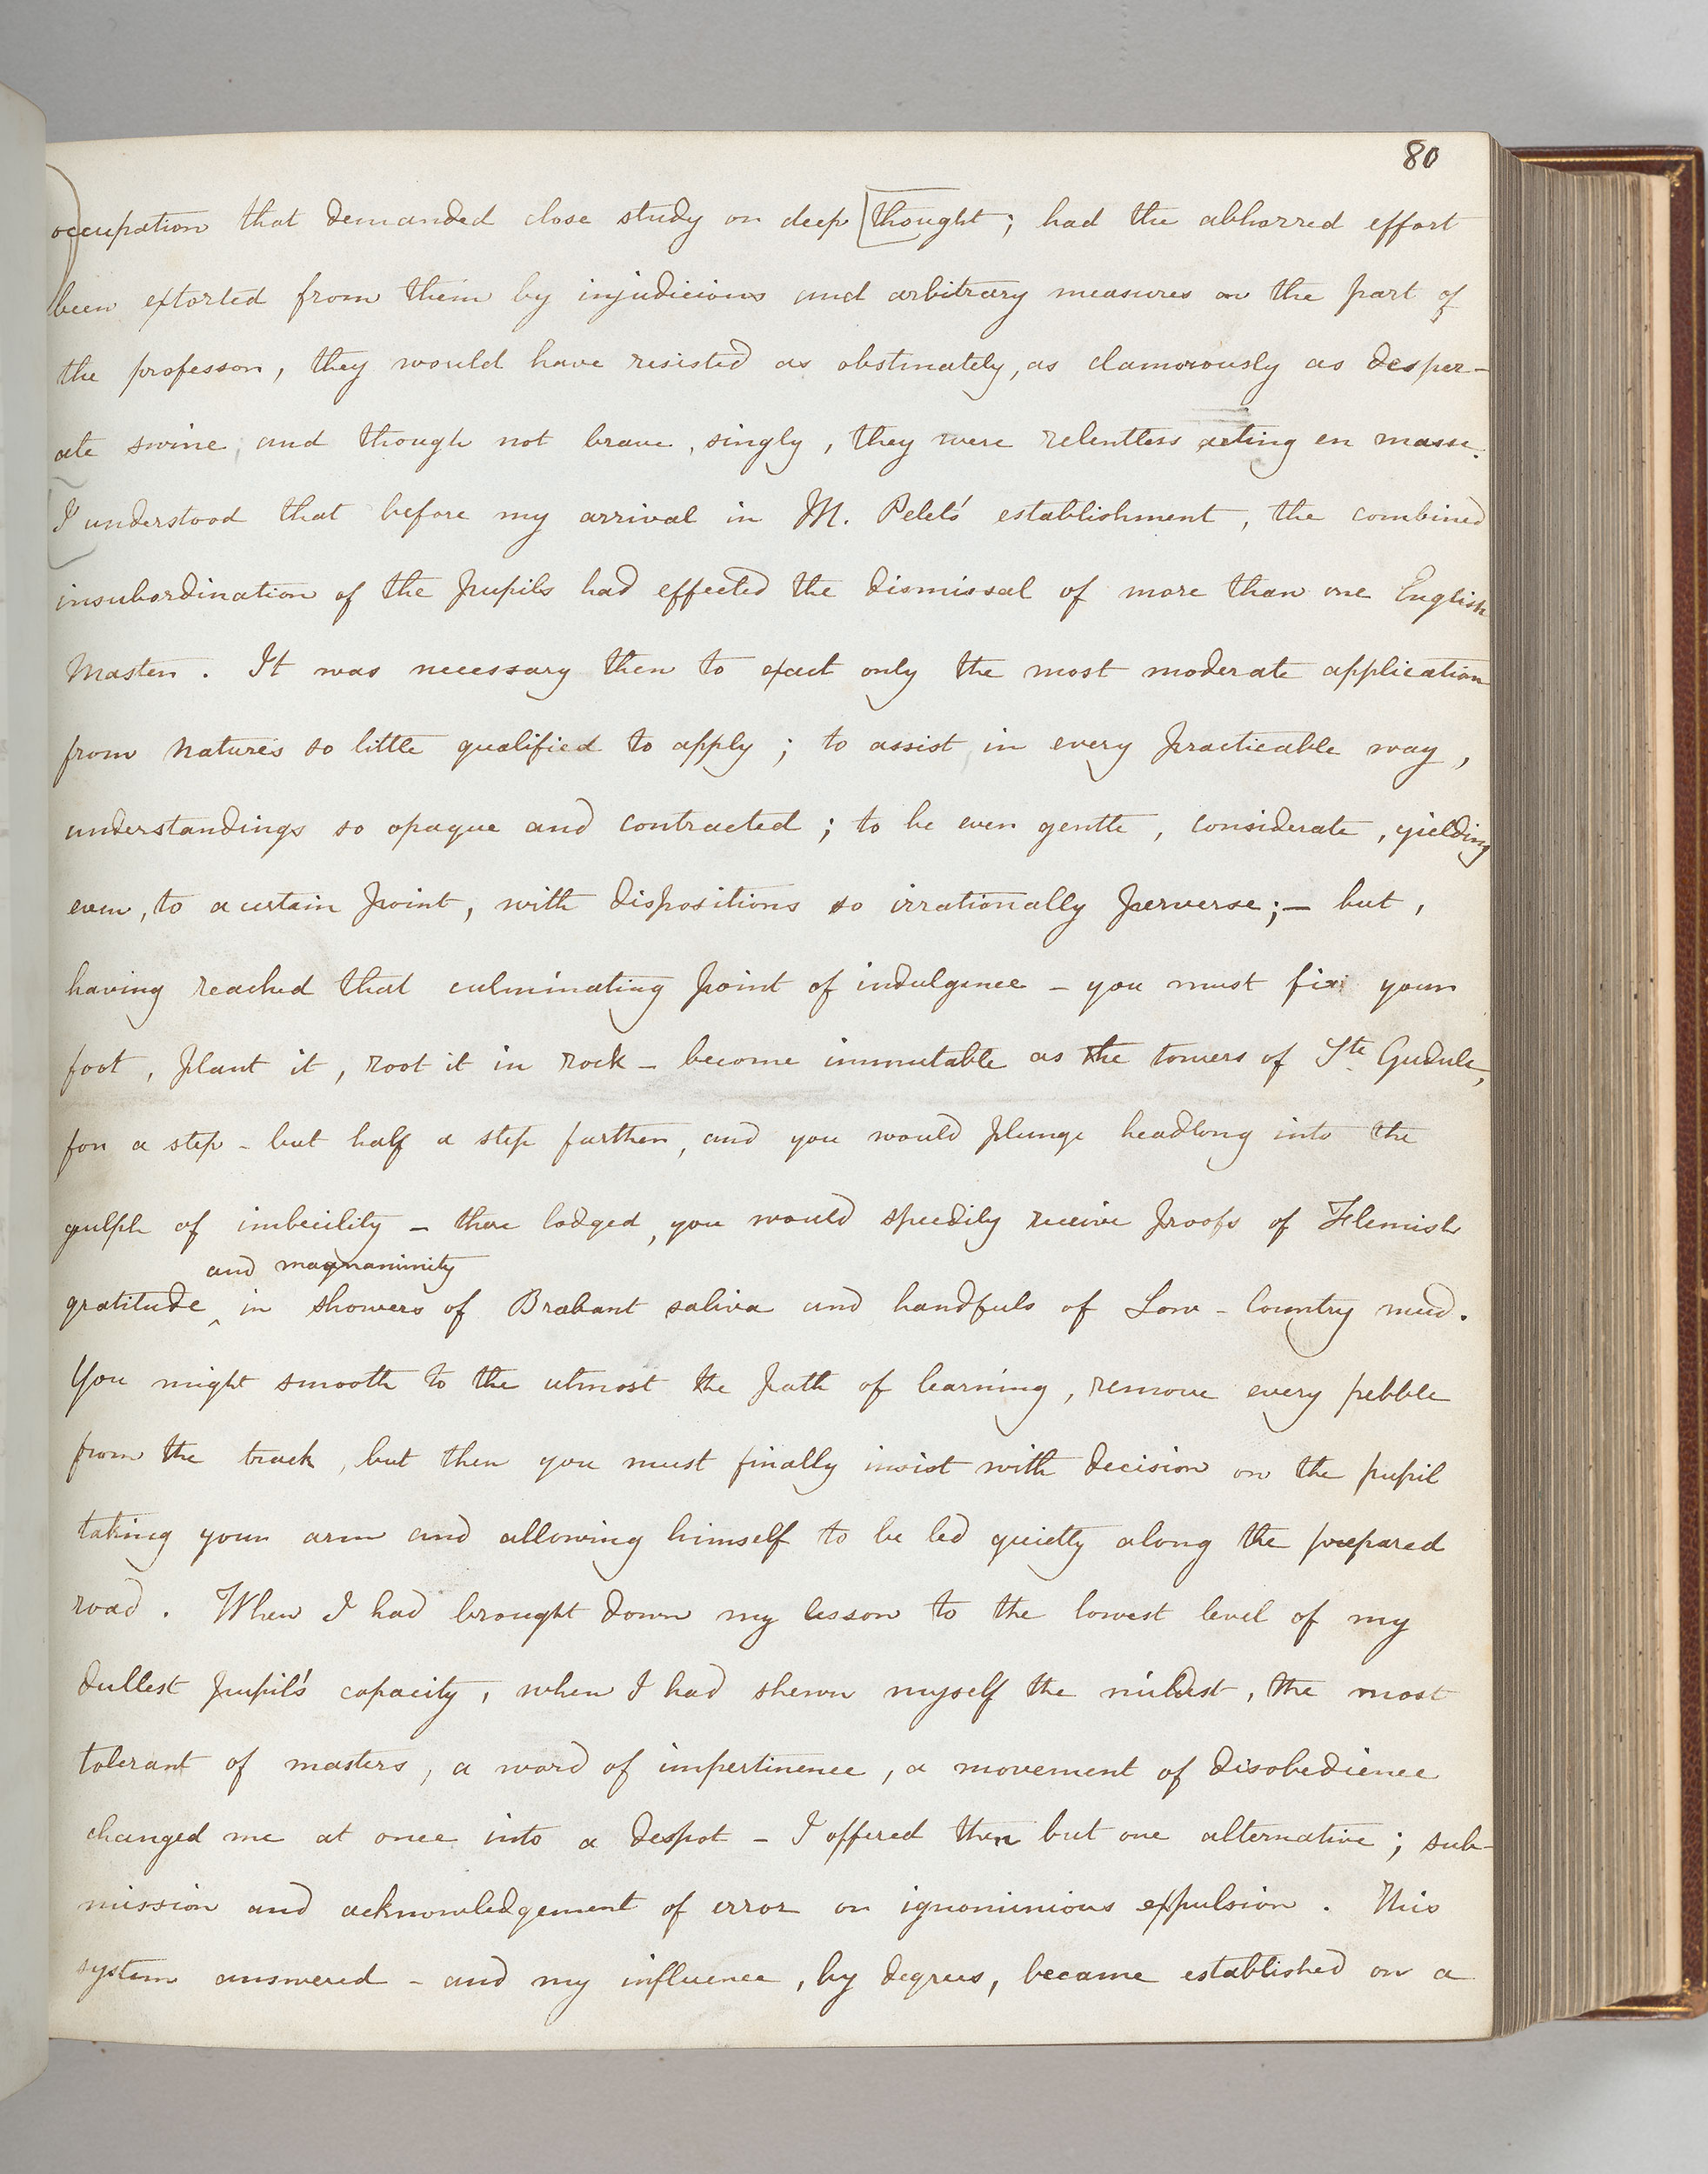 80
occupation that demanded close study or deep [thought; had the abhorred effort
been extorted from them by injudicious and arbitrary measures on the part of
the professor, they would have resisted as obstinately, as clamorously as desper-
ate swine, and though not brave, singly, they were relentless acting en masse.
I understood that before my arrival in M. Pelet's establishment, the combined
insubordination of the pupils had effected the dismissal of more than one English
Master. It was necessary then to exact only the most moderate application
from natures so little qualified to apply; to assist, in every practicable way,
understandings so opaque and contracted; to be ever gentle, considerate, yielding
even, to a certain point, with dispositions so irrationally perverse;— but,
having reached that culminating point of indulgence — you must fix your
foot, plant it, root it in rock — become immutable as the towers of Ste. Gudule,
for a step — but half a step farther, and you would plunge headlong into the
gulph of imbecility — there lodged, you would speedily receive proofs of Flemish
and magnanimity
gratitude ^ in showers of Brabant saliva and handfuls of Low-Country mud.
You might smooth to the utmost the path of learning, remove every pebble
from the track, but then you must finally insist with decision on the pupil
taking your arm and allowing himself to be led quietly along the prepared
road. When I had brought down my lesson to the lowest level of my
dullest pupil's capacity, when I had shewn myself the mildest, the most
tolerant of masters, a word of impertinence, a movement of disobedience
changed me at once into a despot — I offered then but one alternative; sub-
mission and acknowledgement of error or ignominious expulsion. This
system answered — and my influence, by degrees, became established on a